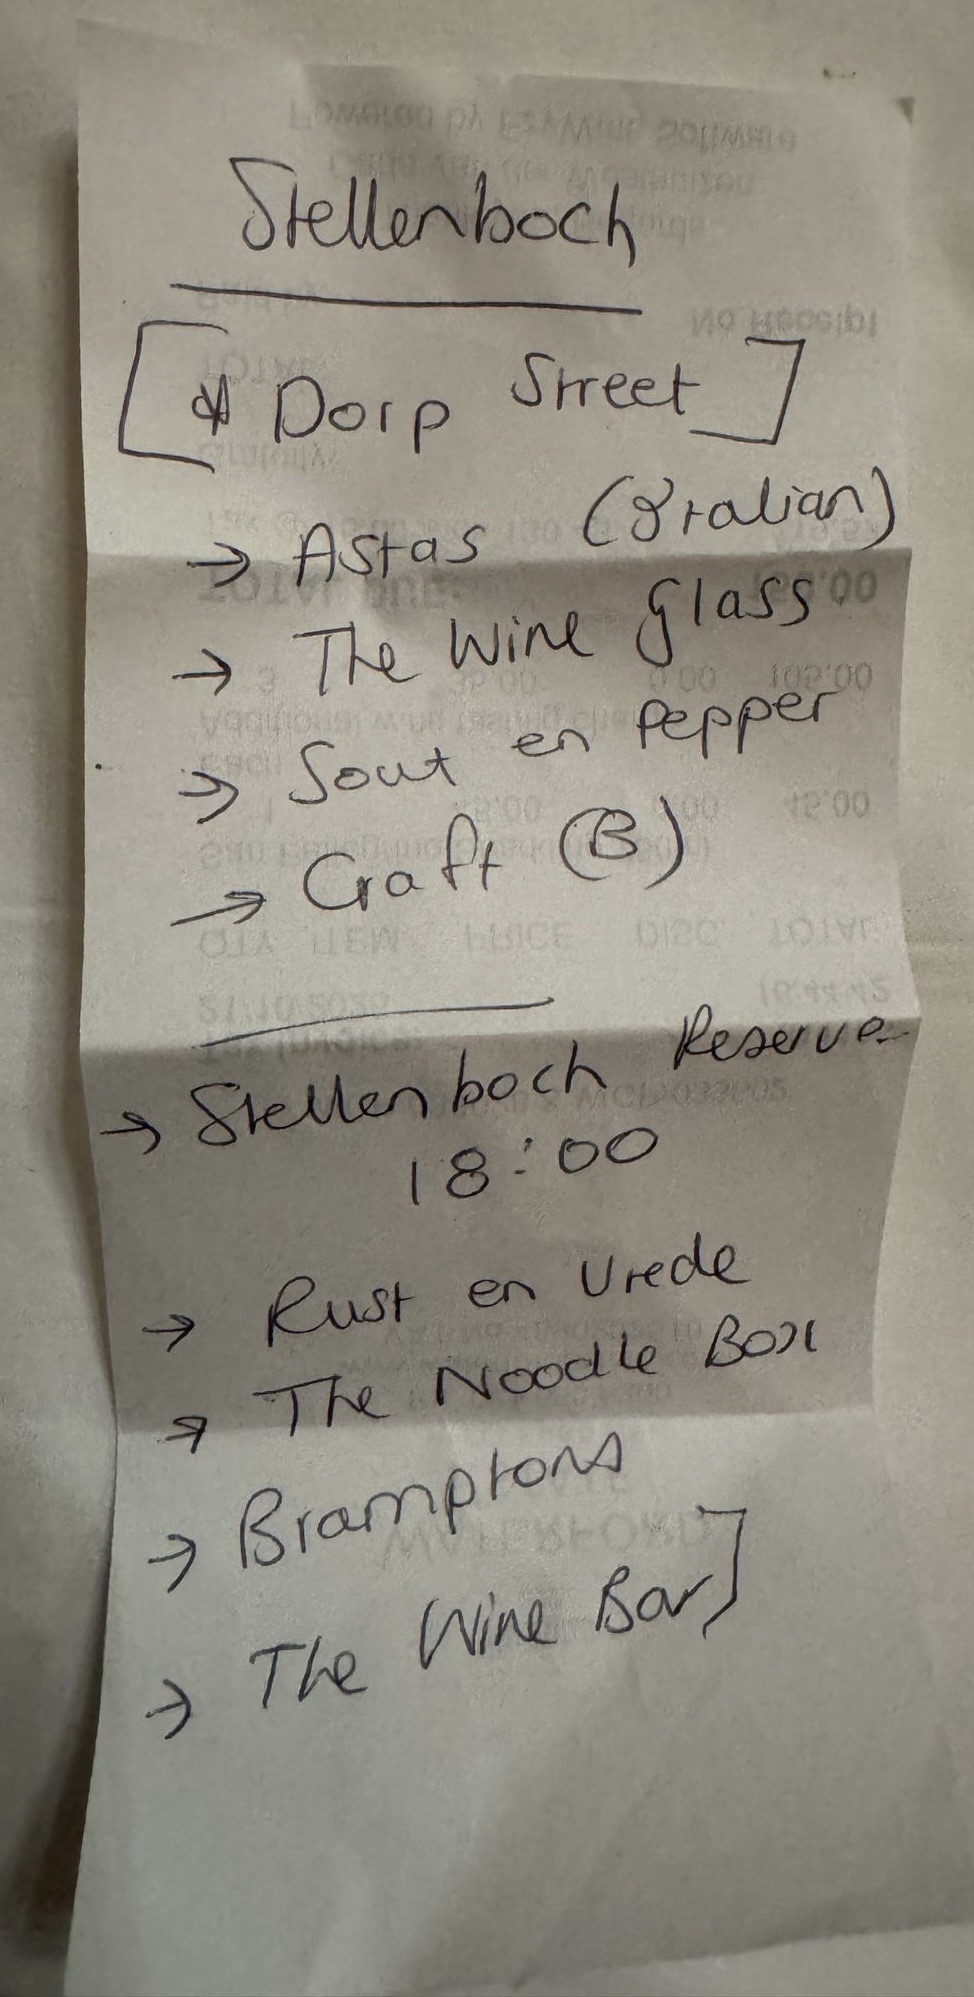 Stellenboch
[* Dorp Street]
→ Astas (Italian)
→ The Wine Glass
→ Sout en Pepper
→ Craft (B)
→ Stellenboch Reserve
18:00
→ Rust en Vrede
→ The Noodle Box
→ Bramptons
→ The Wine Bar]